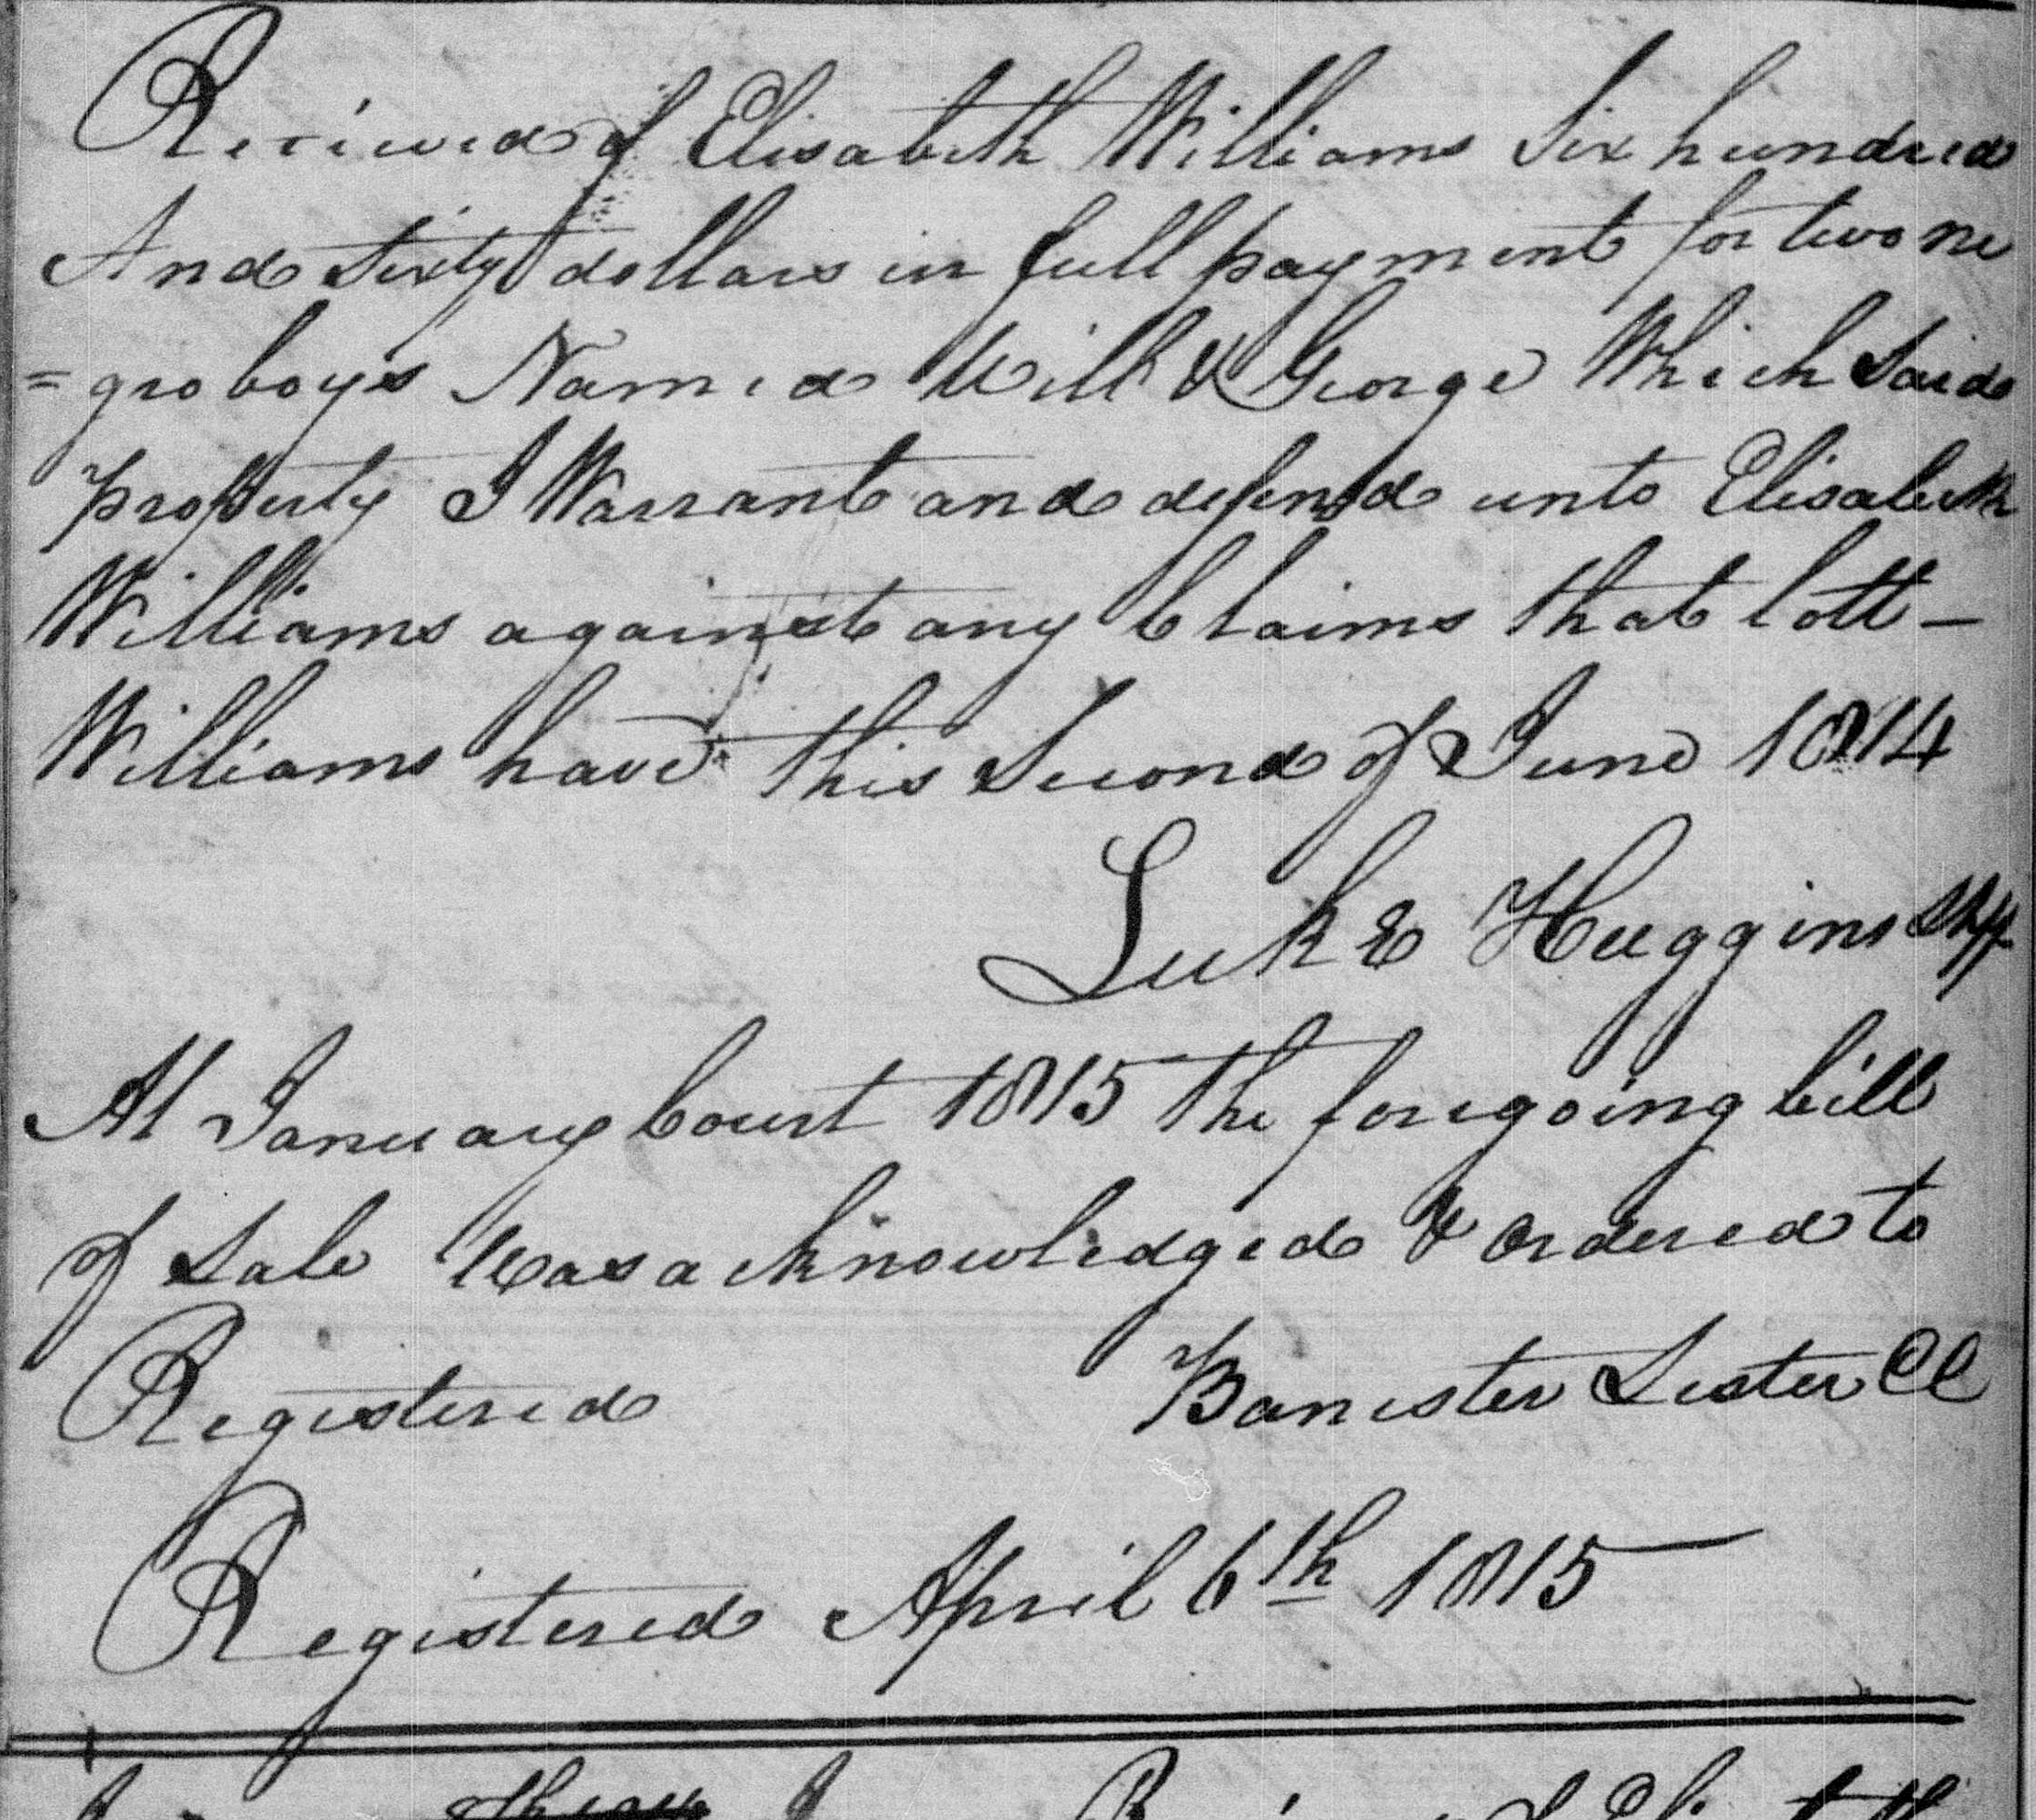 Received of Elisabeth Williams Six hundred
And Sixty dollars in full payment for two ne
=gro boys Named Will & George Which Said
property I Warrant and defend unto Elisabeth
Williams against any Claims that lott —
Williams have this Second of June 1814
Luke Huggins Shff
At January Court 1815 the foregoing bill
of Sale Was acknowledged & Ordered to
Registered Banister Lester CC
Registered April 6th 1815